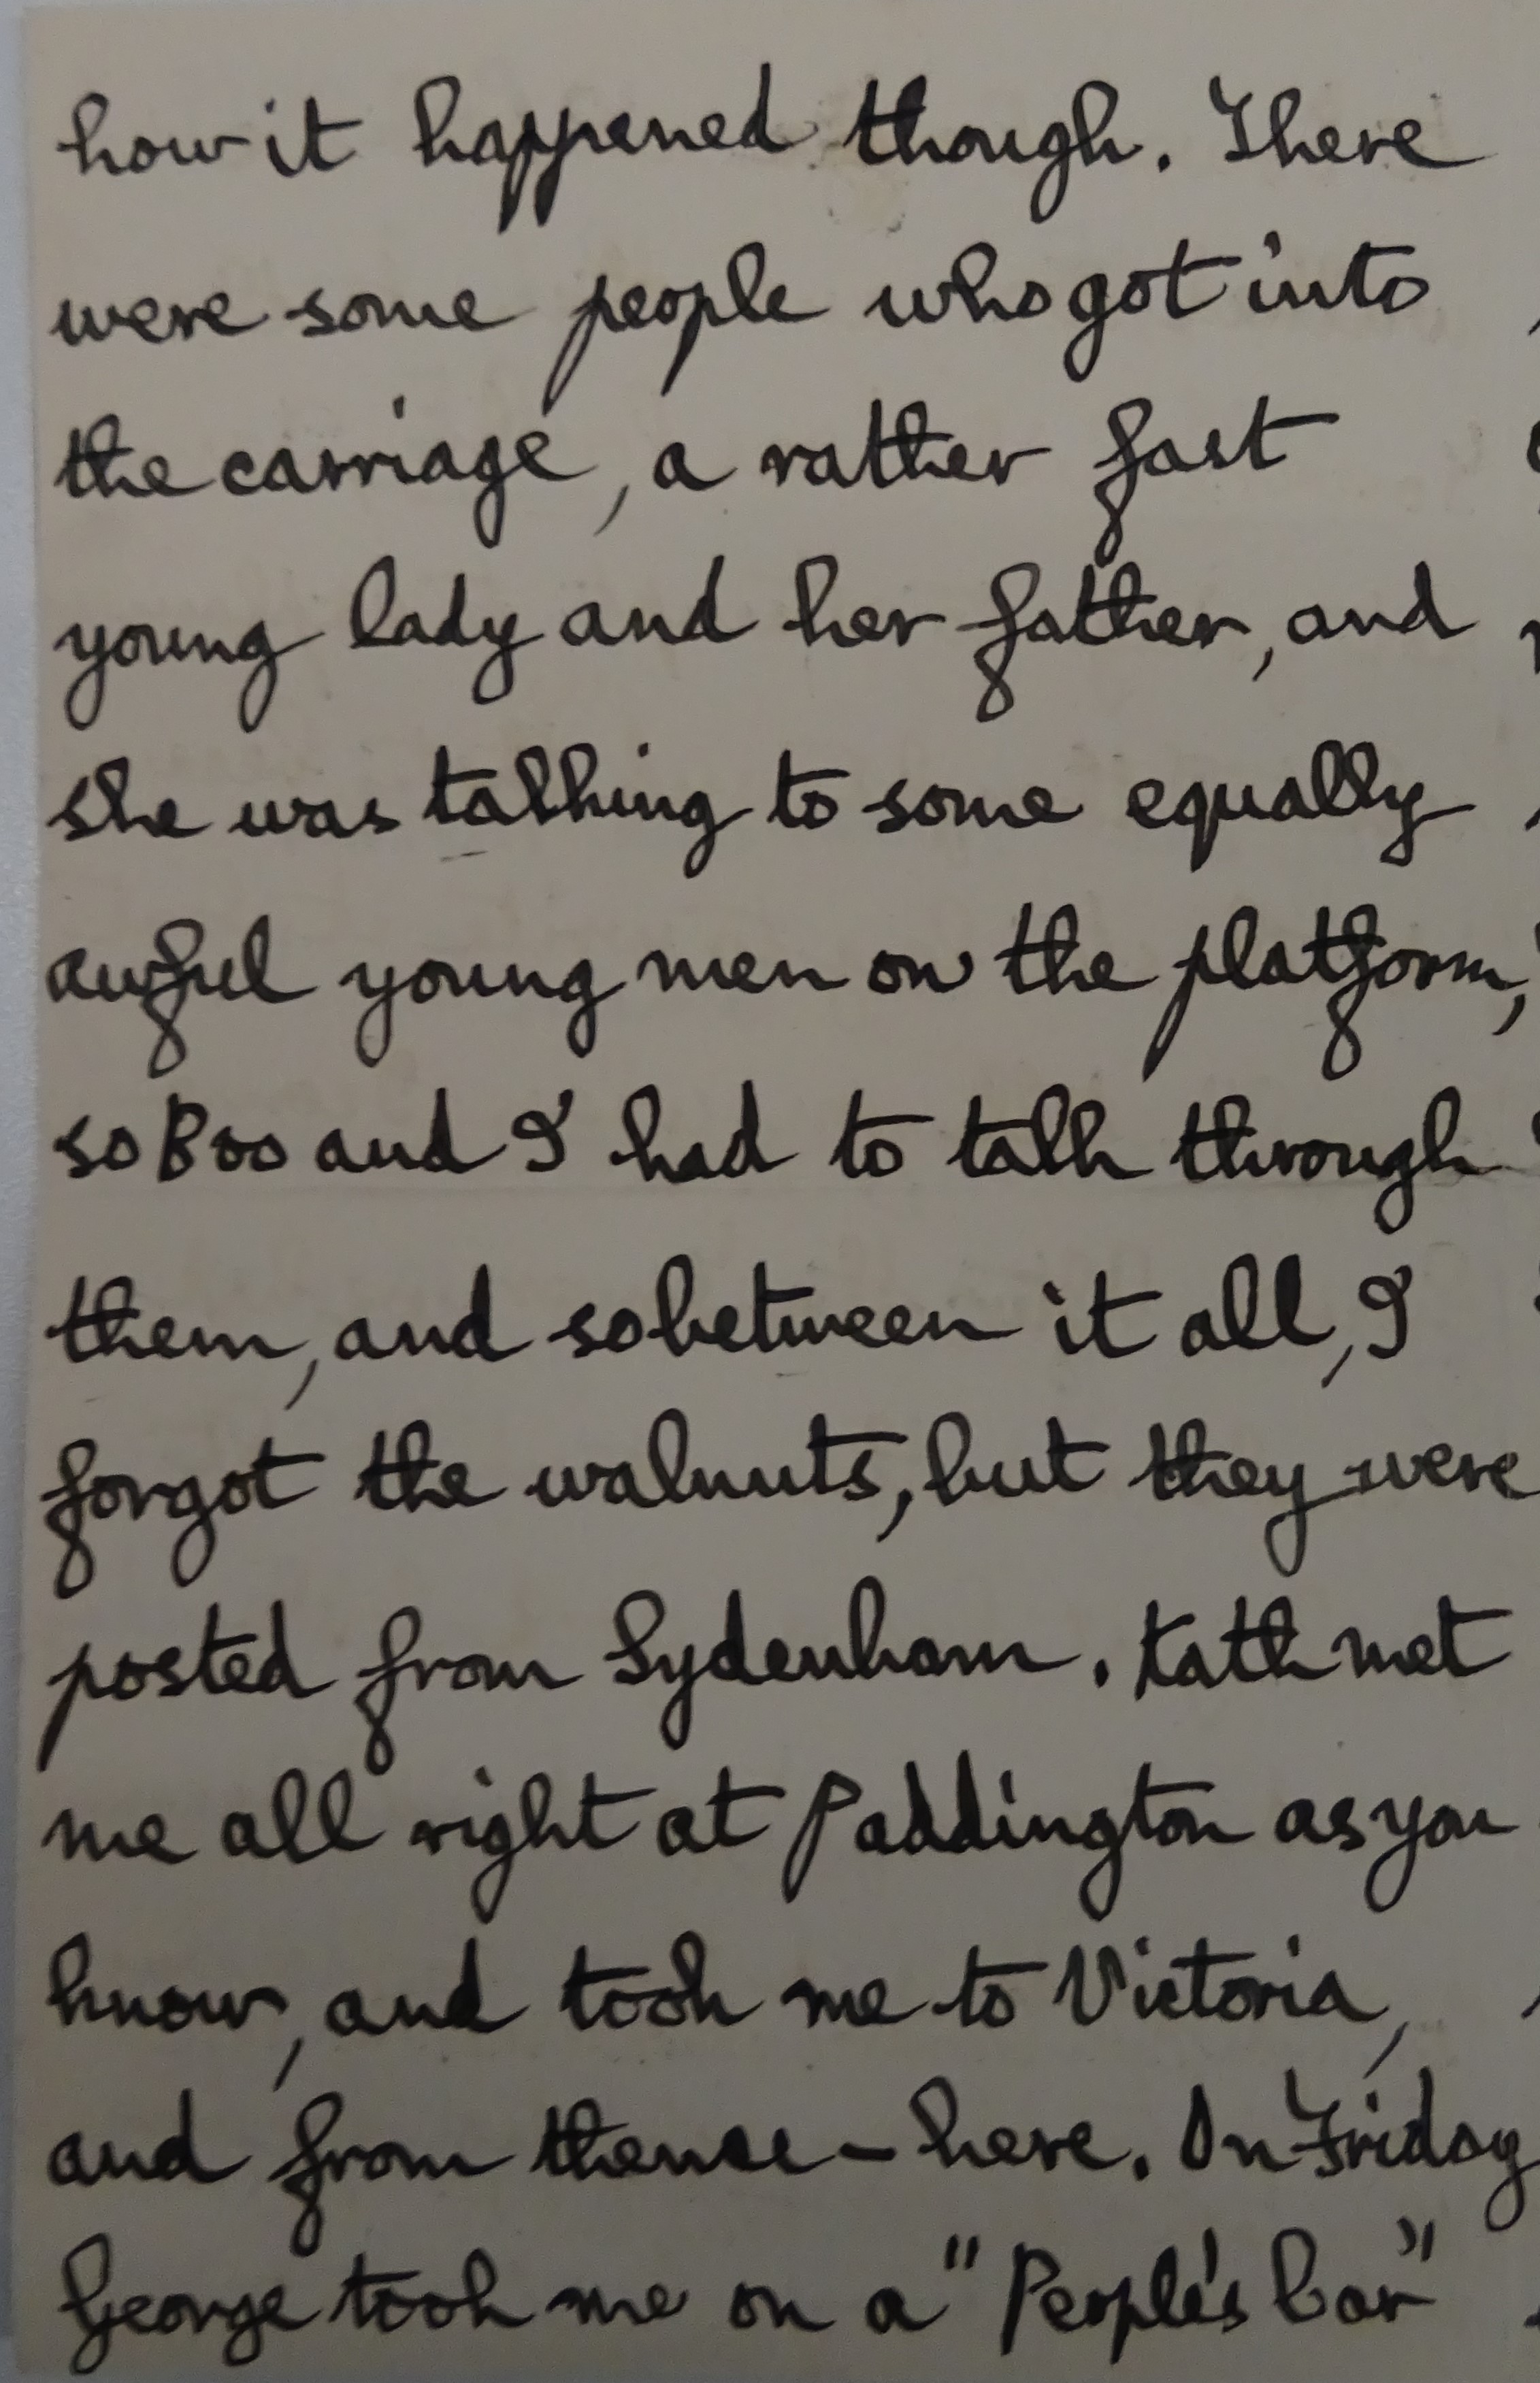 how it happened though. There
were some people who got into
the carriage, a rather fast
young lady and her father, and
she was talking to some equally
awful young men on the platform,
so Boo and I had to talk through
them, and so between it all, I
forgot the walnuts, but they were
posted from Sydenham. Kath met
me all right at Paddington as you
know, and took me to Victoria,
and from thence – here. On Friday
George took me on a "People's Car"